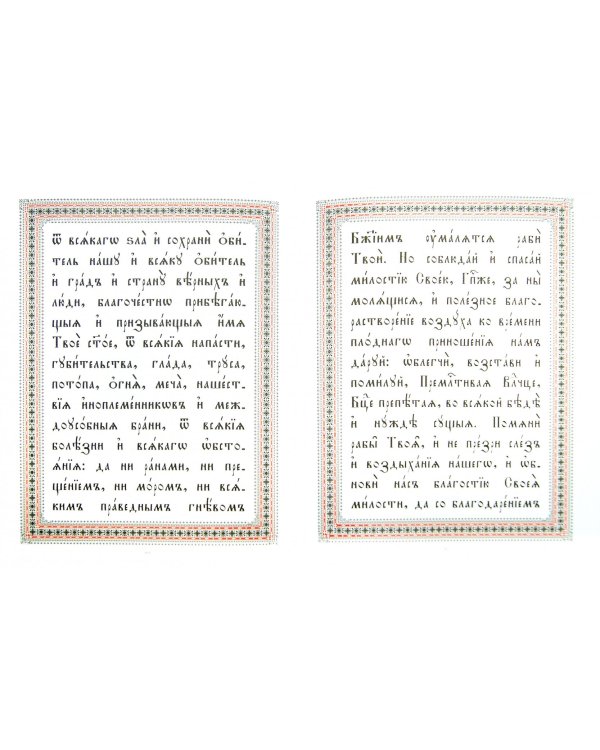 Ѿ всѧ́кагѡ ѕла̀ и҆ сохранѝ ѻ҆би́-
тель на́шу и҆ всѧ́ку ѻ҆би́тель
и҆ гра́дъ и҆ страну̀ вѣ́рныхъ и҆
лю́ди, благоче́стнѡ прибѣга́ю-
щыѧ и҆ призыва́ющыѧ и҆́мѧ
Твоѐ ст҃о́е, ѿ всѧ́кїѧ напа́сти,
губи́тельства, гла́да, тру́са,
пото́па, ѻ҆гнѧ̀, меча̀, наше́ст-
вїѧ и҆ноплеме́нникѡвъ и҆ меж-
доусо́бныѧ бра́ни, ѿ всѧ́кїѧ
болѣ́зни и҆ всѧ́кагѡ ѡ҆бстоѧ-
ѧ́нїѧ: да ни ра́нами, ни пре-
ще́нїемъ, ни мо́ромъ, ни всѧ́-
кимъ пра́веднымъ гнѣ́вомъ
Бж҃їимъ ᲂу҆малѧ́тсѧ рабѝ
Твоѝ. Но соблюда́й и҆ спаса́й
ми́лостїю Свое́ю, Гпⷭ҇же, за ны̀
молѧ́щисѧ, и҆ поле́зное благо-
растворе́нїе во́здꙋха ко вре́мени
плодна́гѡ приноше́нїѧ на́мъ
да́рꙋй: ѡ҆блегчѝ, возста́ви и҆
поми́лꙋй, Премⷭ҇тивая Влⷣчце,
Бц҃е препѣ́таѧ, во всѧ́кой бѣдѣ̀
и҆ нꙋ́ждѣ сꙋ́щыѧ. Помѧнѝ
рабы̑ Твоѧ̑, и҆ не пре́зри сле́зъ
и҆ воздыха́нїѧ на́шегѡ, и҆ ѡ҆б-
новѝ на́съ бла́гостїю Своеѧ̀
ми́лости, да со благодаре́нїемъ